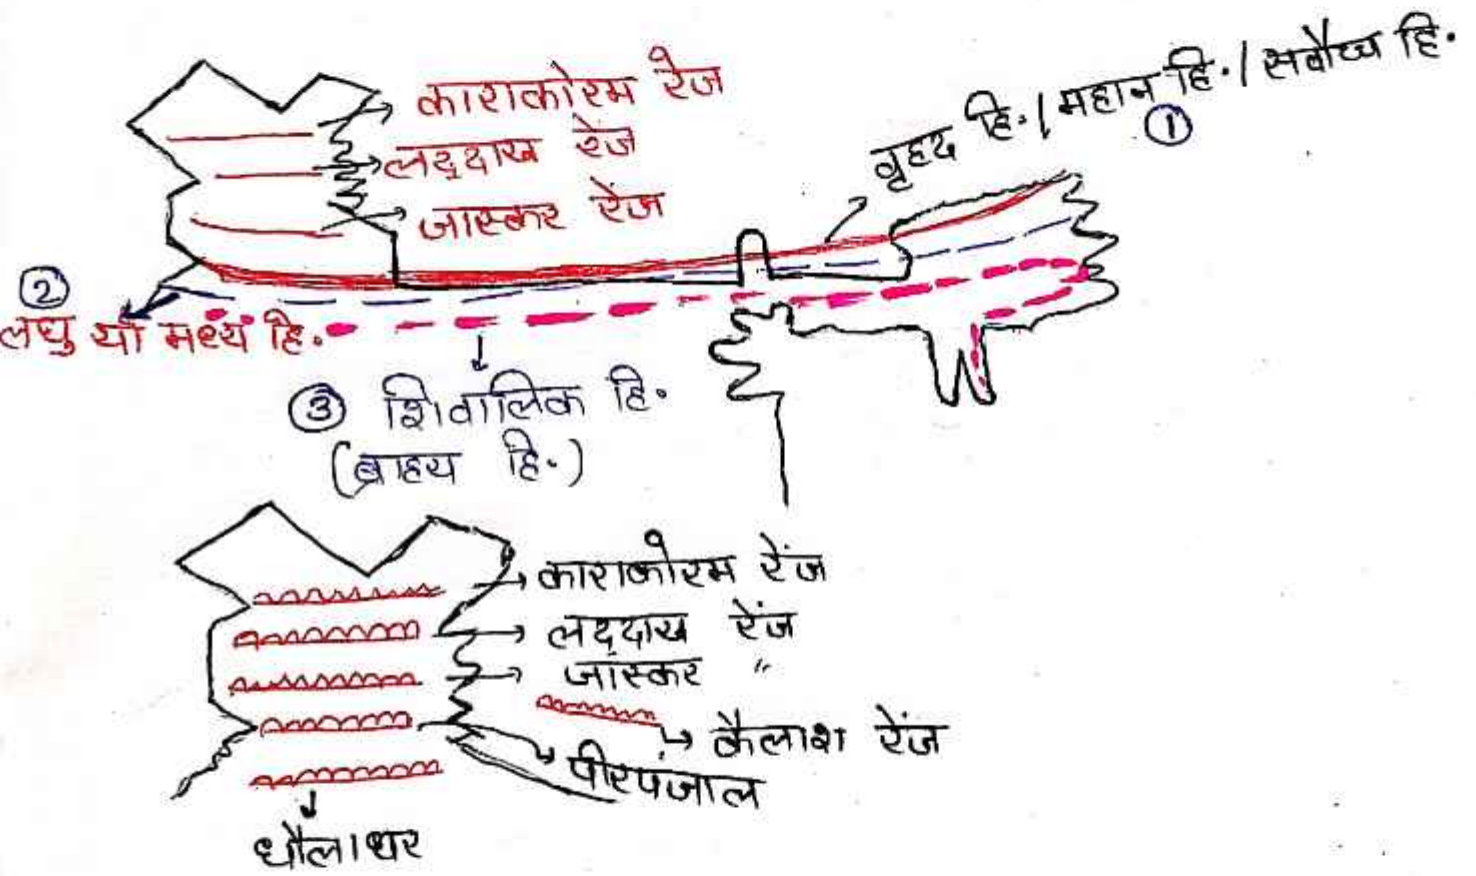 काराकोरम रेंज
लद्दाख रेंज
जास्कर रेंज
वृहद हि. / महान हि. / सर्वोच्च हि.
①
②
लघु या मध्य हि.
③ शिवालिक हि.
(ब्राहय हि.)
काराकोरम रेंज
लद्दाख रेंज
जांस्कर "
कैलाश रेंज
पीरपंजाल
धौलाधर